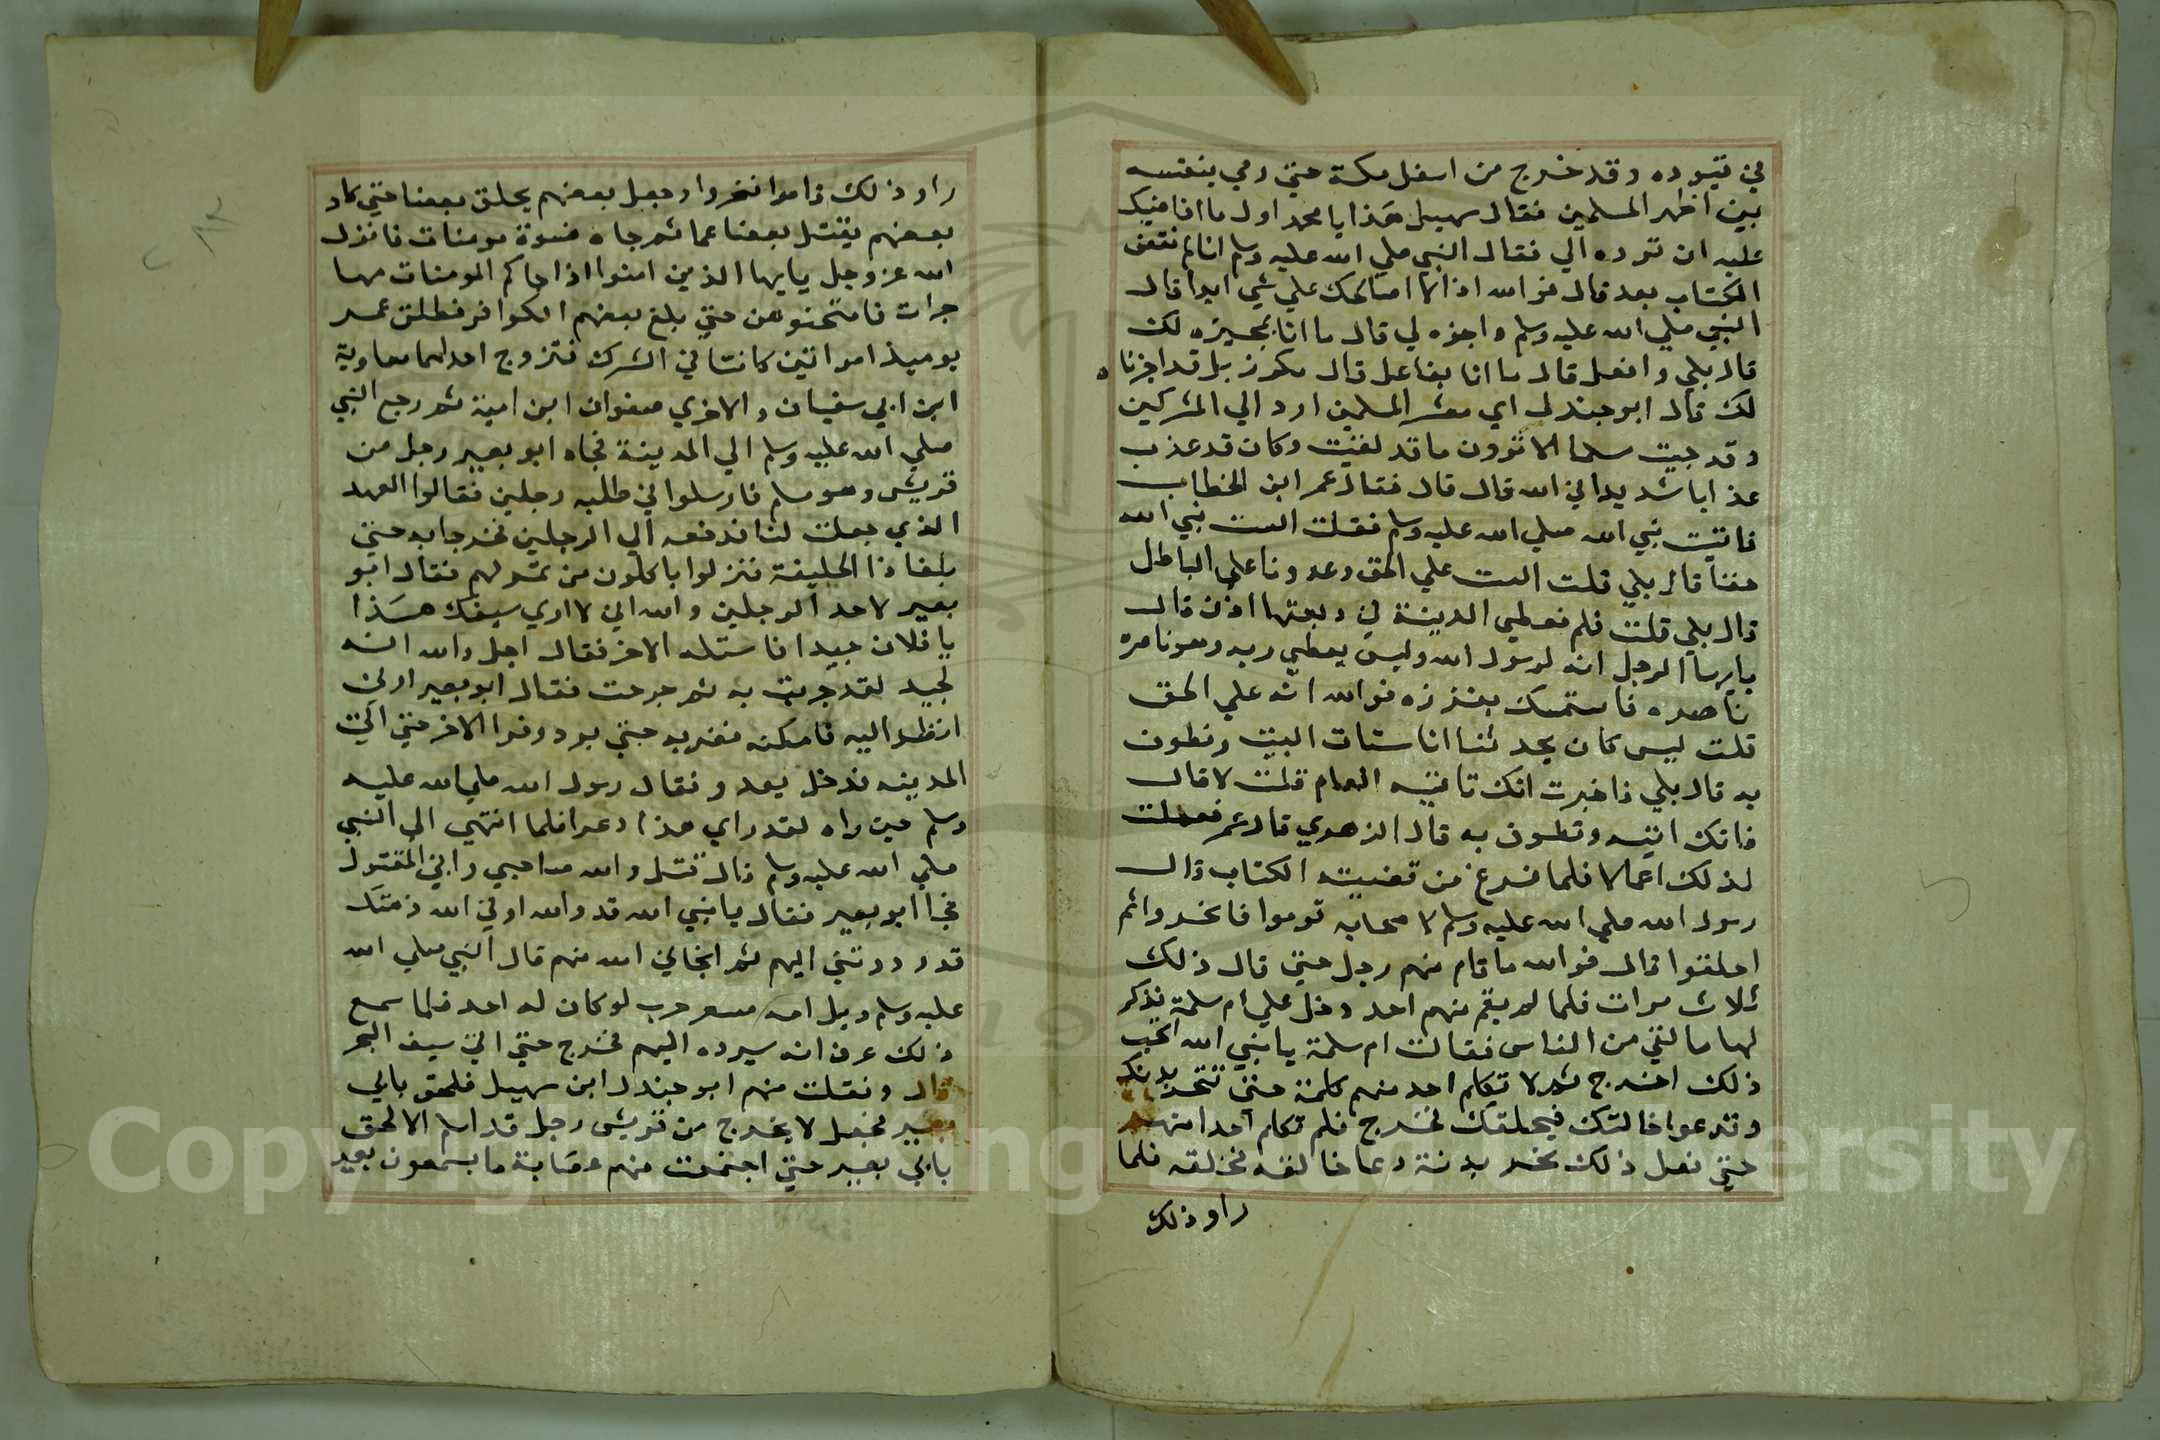 في قيوده وقد خرج من اسفل مكة حتي رمي بنفسه
بين اظهر المسلمين فقال سهيل هذا يا محمد اول ما اقاضيك
عليه ان ترده الي فقال النبي صلي الله عليه وسلم انا لم نقض
الكتاب بعد قال فوالله اذا لا اصالحك علي شي ابدا قال
النبي صلي الله عليه وسلم واجزه لي قال ما انا بمجيزه لك
قال بلي وافعل قال ما انا بفاعل قال مكرز بل قد اجزناه
لك قال ابو جندل اي معشر المسلمين ارد الي المشركين
وقد جيت سلما الا ترون ما قد لقيت وكان قد عذب
عذابا شديدا في الله قال قال فقال عمر ابن الخطاب
فاتيت نبي الله صلي الله عليه وسلم فقلت الست نبي الله
حقا قال بلي قلت الست علي الحق وعدونا علي الباطل
قال بلي قلت فلم نعطي الدينة في ديعتها اذن قال
يايها الرجل انه لرسول الله وليس يعطي ربه وهو ناصره
ناصره فاستمسك بغرزه فوالله انه علي الحق
قلت ليس كان يحدثنا انا سنات البيت ونطوف
به قال بلي فاخبرت انك تاتيه العام قلت لا قال
فانك اتيه وتطوف به قال الزهري قال عمر فعملت
لذلك اعمالا فلما فرغ من قضيته الكتاب قال
رسول الله صلي الله عليه وسلم لاصحابه قوموا فانحروا ثم
احلقوا قال فوالله ما قام منهم رجل حتي قال ذلك
ثلاث مرات فلما لم يقم منهم احد دخل علي ام سلمة فذكر
لها ما لقي من الناس فقالت ام سلمة يا نبي الله اتحب
ذلك اخرج ثم لا تكلم احد منهم كلمة حتي تنحر بدنك
وتدعوا خالقك فيحلقك فخرج فلم تكلم احدا منهم
حتي فعل ذلك نحر بدنة ودعا خالقه فخلقه فلما
راو ذلك
راو ذلك قاموا فنحروا وجعل بعضهم يحلق بعضا حتي كاد
بعضهم يقتل بعضا عما ثم جاه نسوة مومنات فانزل
الله عز وجل يايها الذين امنوا اذا جاكم المومنات مها
جرات فامتحنوهن حتي بلغ بعضهم الكوافر فطلق عمر
يوميذ امراتين كانتا في الشرك فتزوج احدلهما معاوية
ابن ابي سفيان والاخري صفوان ابن امية ثم رجع النبي
صلي الله عليه وسلم الي المدينة فجاه ابو بصير رجل من
قريش وهو مسلم فارسلوا في طلبه رجلين فقالوا العهد
الذي جعلت لنا فدفعه الي الرجلين فخرجا به حتي
بلغا ذا الحليفة فنزلوا ياكلون من تمر لهم فقال ابو
بصير لاحد الرجلين والله اني لا اري سيفك هذا
يا فلان جيدا فاستله الاخر فقال اجل والله انه
لجيد لقد جربت به ثم جربت فقال ابو بصير ارني
انظر اليه فامكنه فضربه حتي برد وفر الاخر حتي اتي
المدينه فدخل يعدو فقال رسول الله صلي الله عليه
وسلم حين راه لقد راي هذا دعرا فلما انتهي الي النبي
صلي الله عليه وسلم قال قتل والله صاحبي واني لمقتول
فجا ابو بصير فقال يا نبي الله قد والله اوفي الله ذمتك
قد رددتني اليهم ثم انجاني الله منهم قال النبي صلي الله
عليه وسلم ويل امه مسعر حرب لو كان له احد فلما سمع
ذلك عرف انه سيرده اليهم فخرج حتي اتي سيف البحر
قال ونفلت منهم ابو جندل ابن سهيل فلحق بابي
بصير فجعل لا يخرج من قريش رجل قد اسلم الا لحق
بابي بصير حتي اجتمعت منهم عصابة ما يسمعون بعير
Copyright © King Saud University